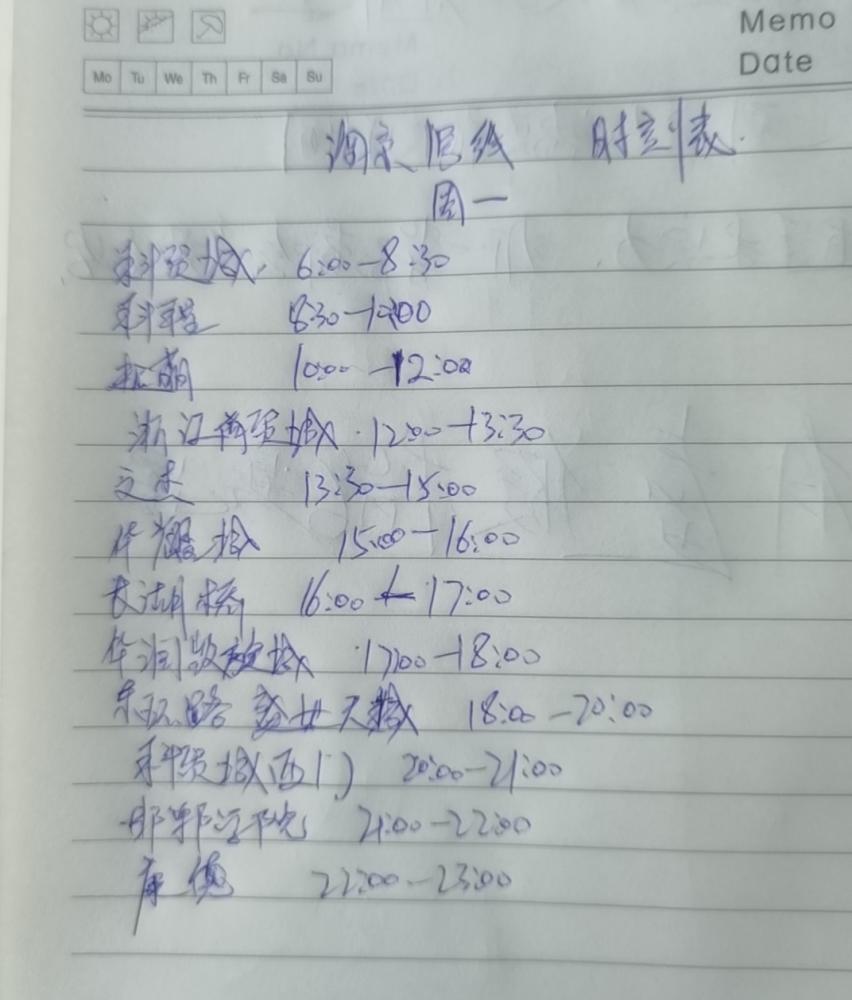 Memo
Date
Mo Tu We Th Fr Sa Su
时刻表.
周一
科贸城. 6:00-8:30
8:30-10:00
10:00-12:00
浙江商贸城.12:00-13:30
13:30-15:00
华耀城 15:00-16:00
16:00-17:00
华润 城 17:00-18:00
东环路 天城 18:00-20:00
科贸城(西门) 20:00-21:00
邯郸学院 21:00-22:00
康德 22:00-23:00